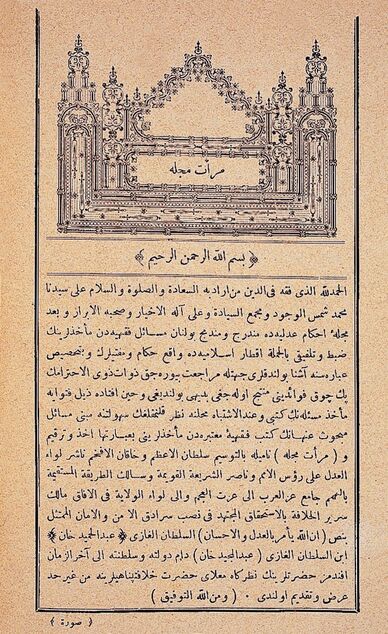 مرأت مجله
﴿ بسم الله الرحمن الرحيم ﴾
الحمدلله الذى فقه فى الدين من اراد به السعادة والصلوة والسلام على سيدنا
محمد شمس الوجود ومجمع السيادة وعلى آله الاخيار وصحبه الابرار و بعد
مجلهٔ احكام عدليه ده مندرج ومندمج بولنان مسائل فقهيه دن مأخذلرينك
ضبط وتلفيقى بالجملة اقطار اسلاميه ده واقع حكام ومفتيلرك و بتخصيص
عباره سنه آشنا بولندقلرى جهتله مراجعت بيوره جق ذوات ذوى الاحترامك
پك چوق فوائدينى منتج اوله جغى بديهى بولنديغى وحين افتاده ذيل فتوايه
مأخذ مسئله نك كتبى وعند الاشتباه مجله نظر قلنمقلغك سهولتنه مبنى مسائل
مبحوث عنهانك كتب فقهيهٔ معتبره دن مأخذلرينى بعبارتها اخذ وترقيم
و ( مرأت مجله ) ناميله بالتوسيم سلطان الاعظم وخاقان الافخم ناشر لواء
العدل على رؤس الامم وناصر الشريعة القويمة وسالك الطريقة المستقيمة
بالهمم جامع عز العرب الى عزت العجم والى لواء الولاية فى الافاق مالك
سرير الخلافة بالاستحقاق المجتهد فى نصب سرادق الامن والامان الممتثل
بنص ( ان الله يأمر بالعدل والاحسان ) السلطان الغازى ﴿ عبد الحميد خان ﴾
ابن السلطان الغازى ( عبد المجيد خان ) دام دولته وسلطنته الى آخر الزمان
افندمز حضرتلرينك نظركاه معلاى حضرت خلافتپناهيلرينه من غير حد
عرض وتقديم اولندى ٠ ( ومن الله التوفيق )
( صورة )